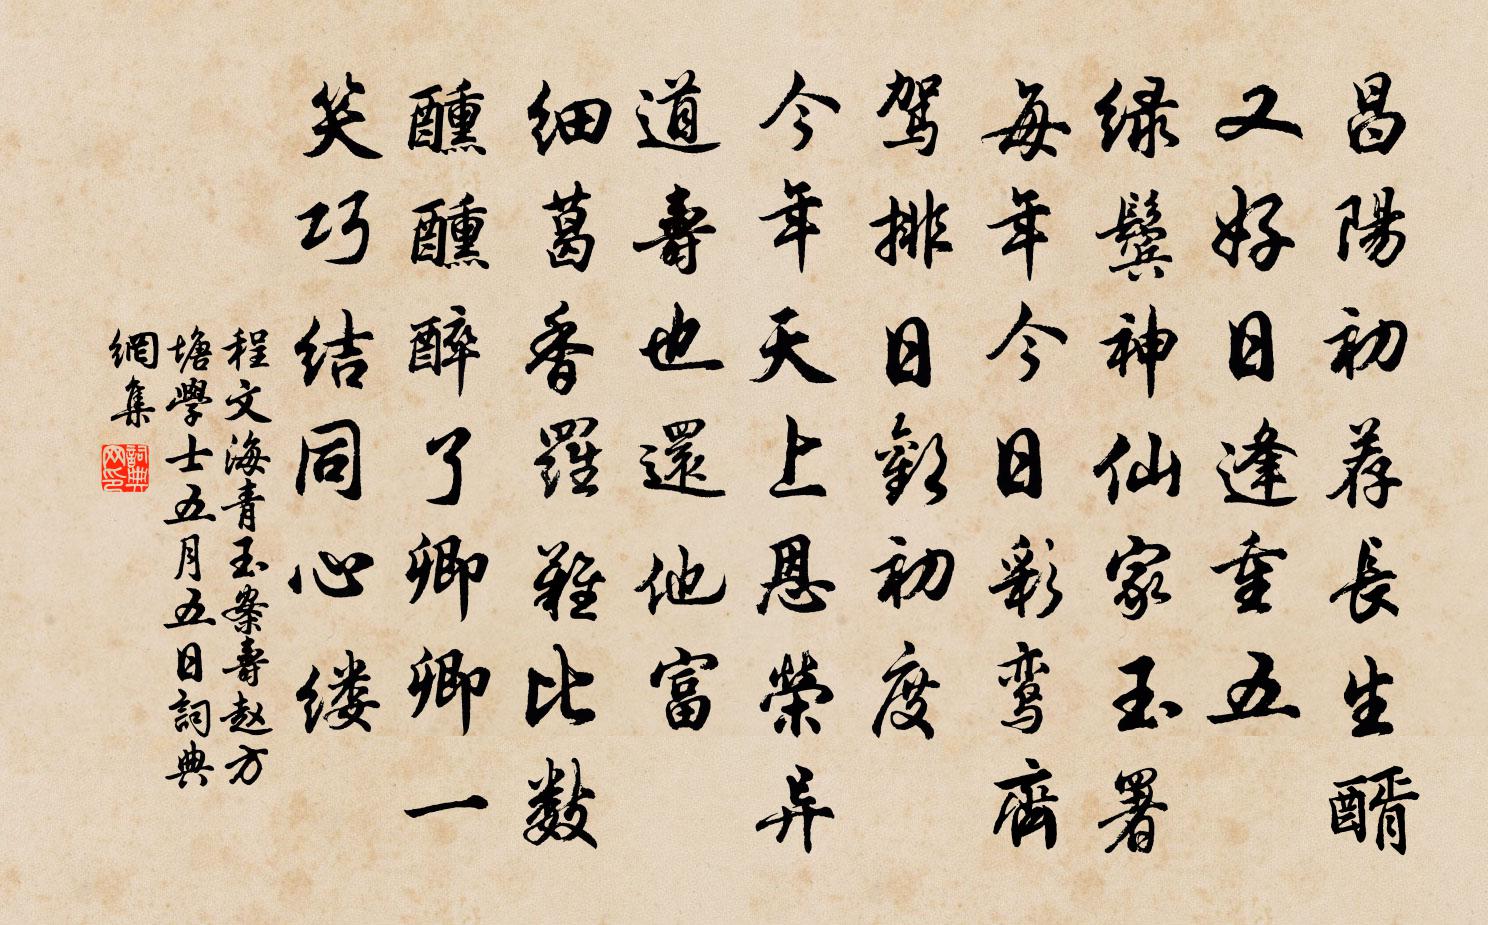 昌陽初荐長生醑
又好日逢重五
緑鬓神仙家玉署
每年今日彩鸾齊
驾排日歡初度
今年天上恩榮异
道壽也還他富
细葛香羅難比数
醺醺醉了卿卿一
笑巧结同心缕
程文海青玉案壽赵方
塘學士五月五日詞典
網集
詞典
网印